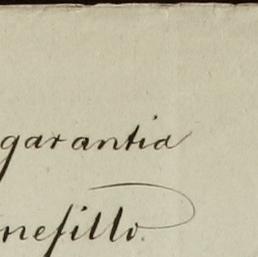 garantia
nefillo.